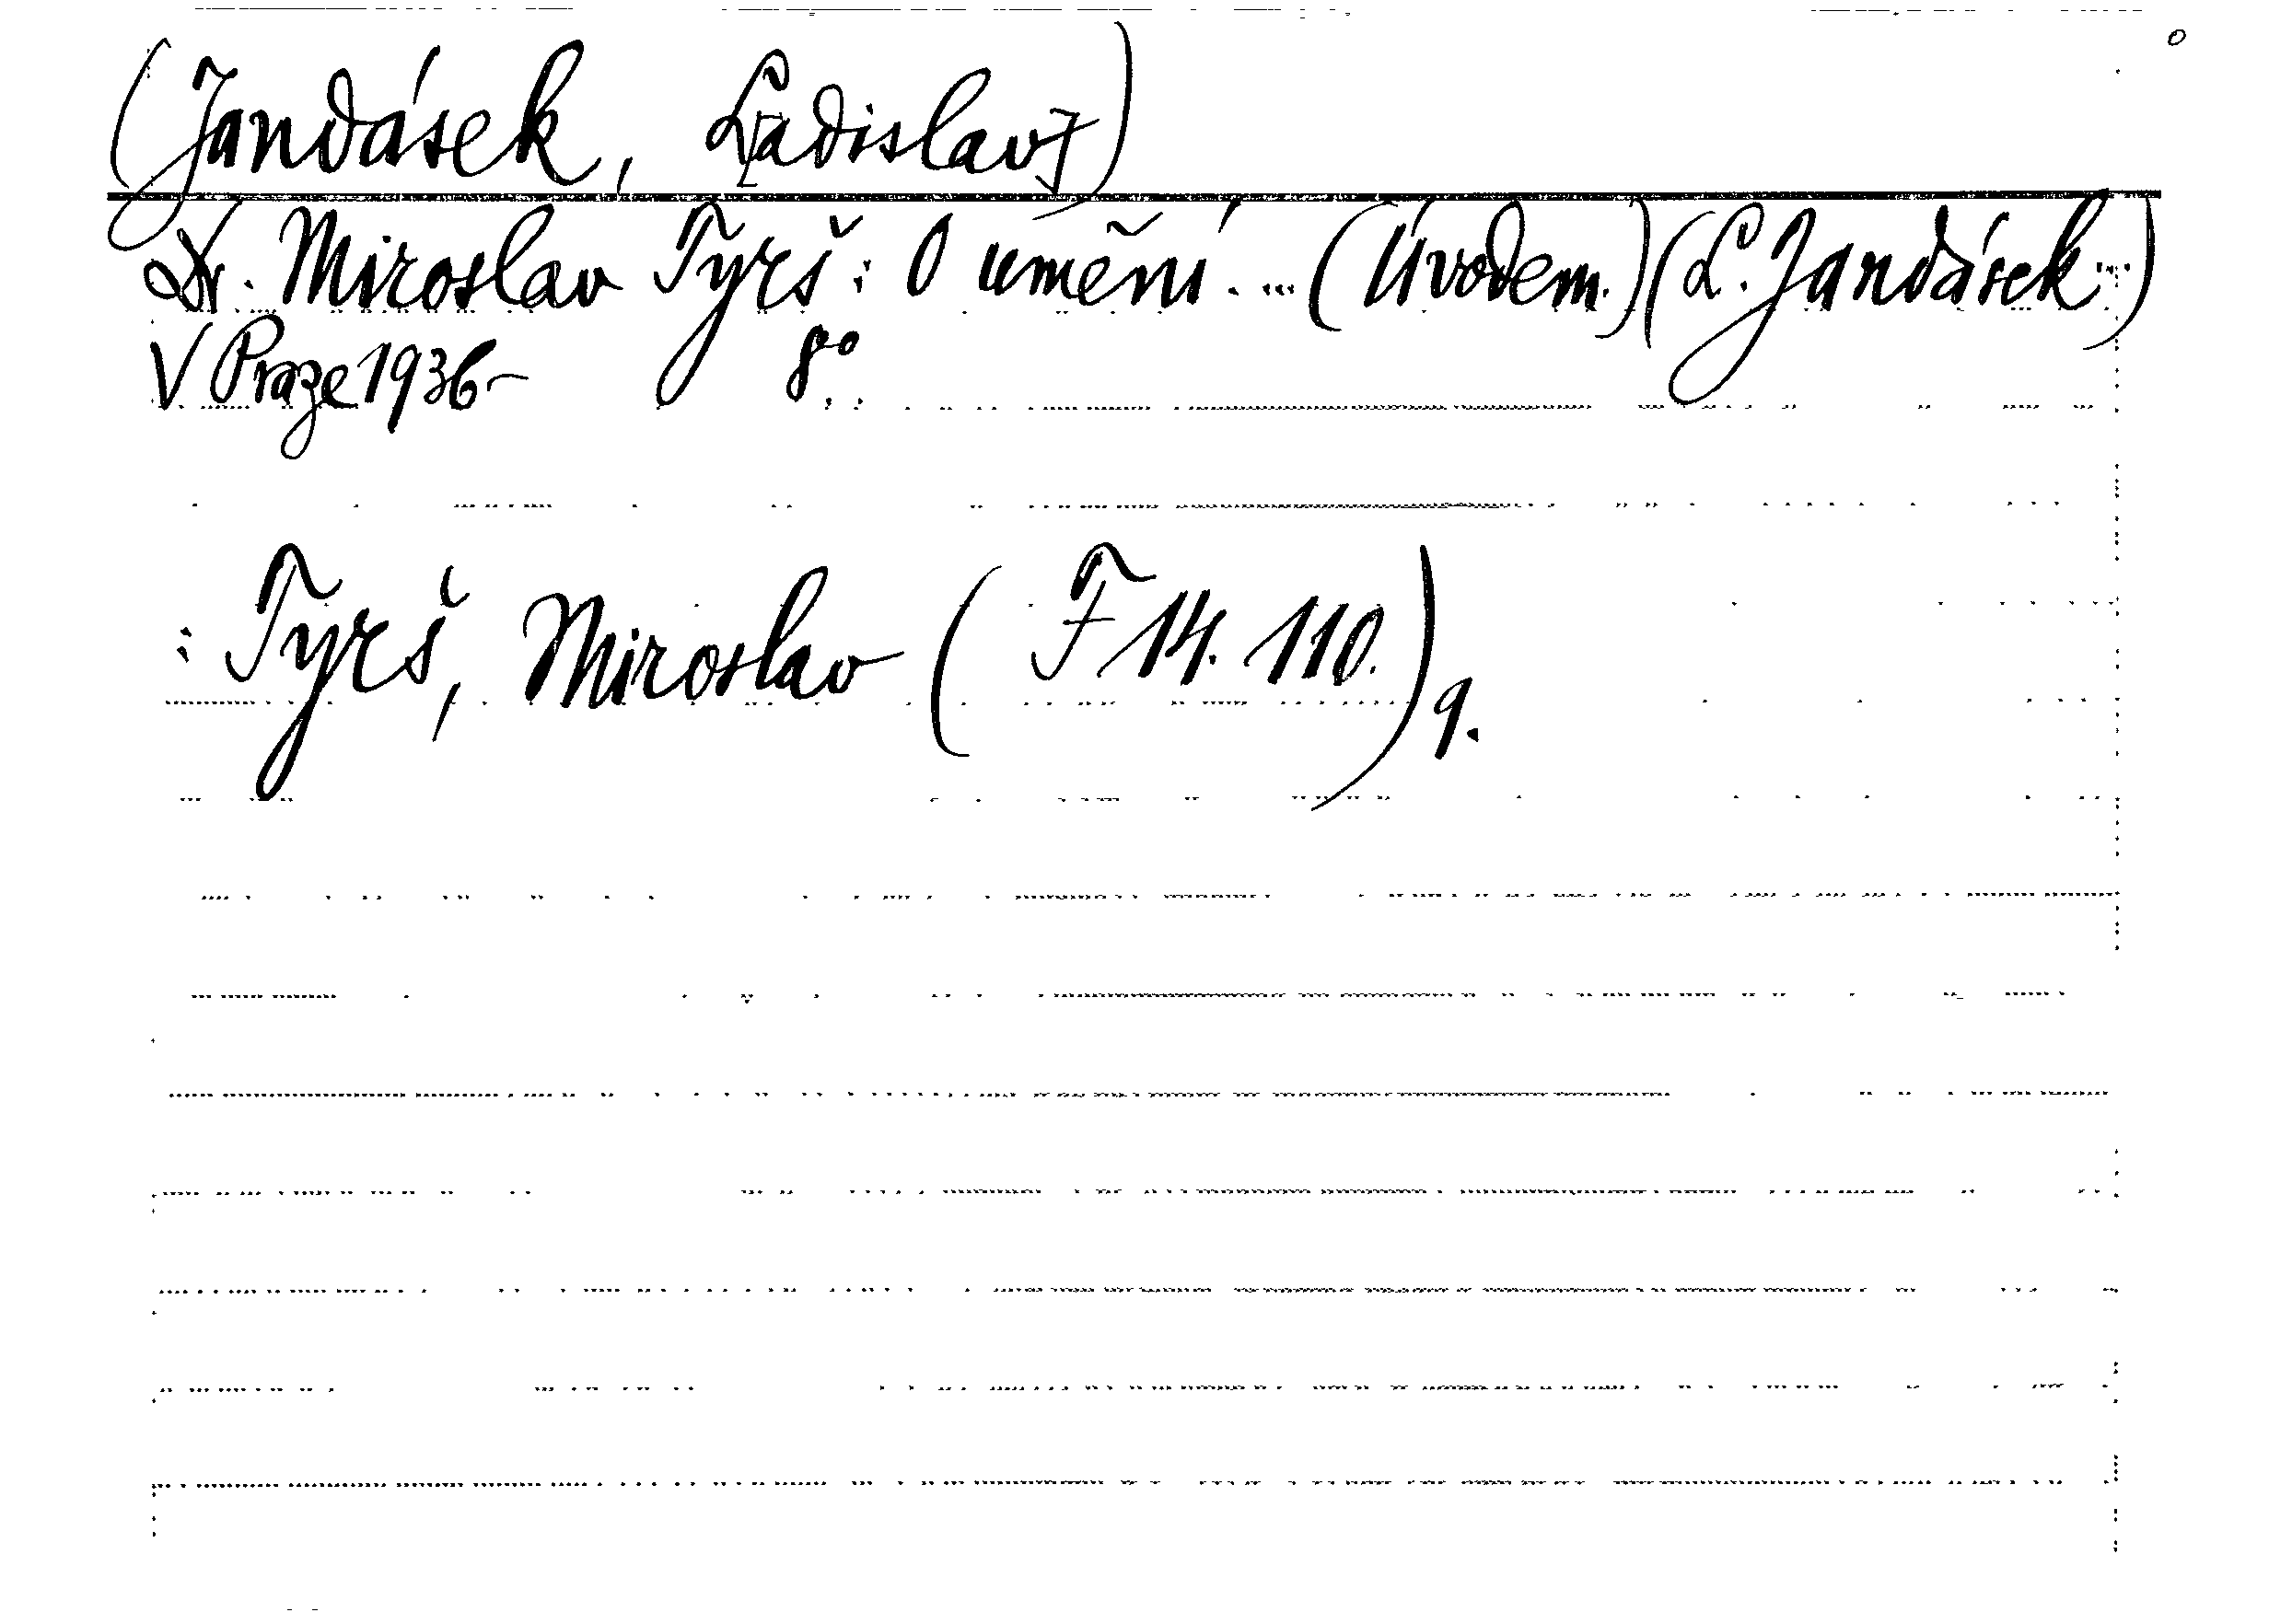 (Jandásek, L[adislav])
Dr. Miroslav Tyrš: O umění. ... (Úvodem.) (L. Jandásek...)
V Praze 1936- 8°
: Tyrš, Miroslav (F 14. 110.) q.